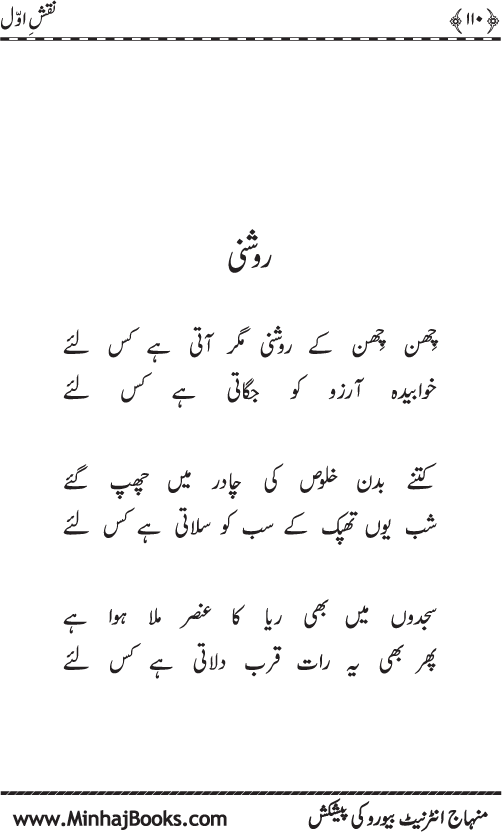 ﴿۱۱۰﴾ نقشِ اوّل
روشنی
چِھن چِھن کے روشنی مگر آتی ہے کس لئے
خوابیدہ آرزو کو جگاتی ہے کس لئے
کتنے بدن خلوص کی چادر میں چھپ گئے
شب یوں تھپک کے سب کو سلاتی ہے کس لئے
سجدوں میں بھی ریا کا عنصر ملا ہوا ہے
پھر بھی یہ رات قرب دلاتی ہے کس لئے
منہاج انٹرنیٹ بیورو کی پیشکش www.MinhajBooks.com